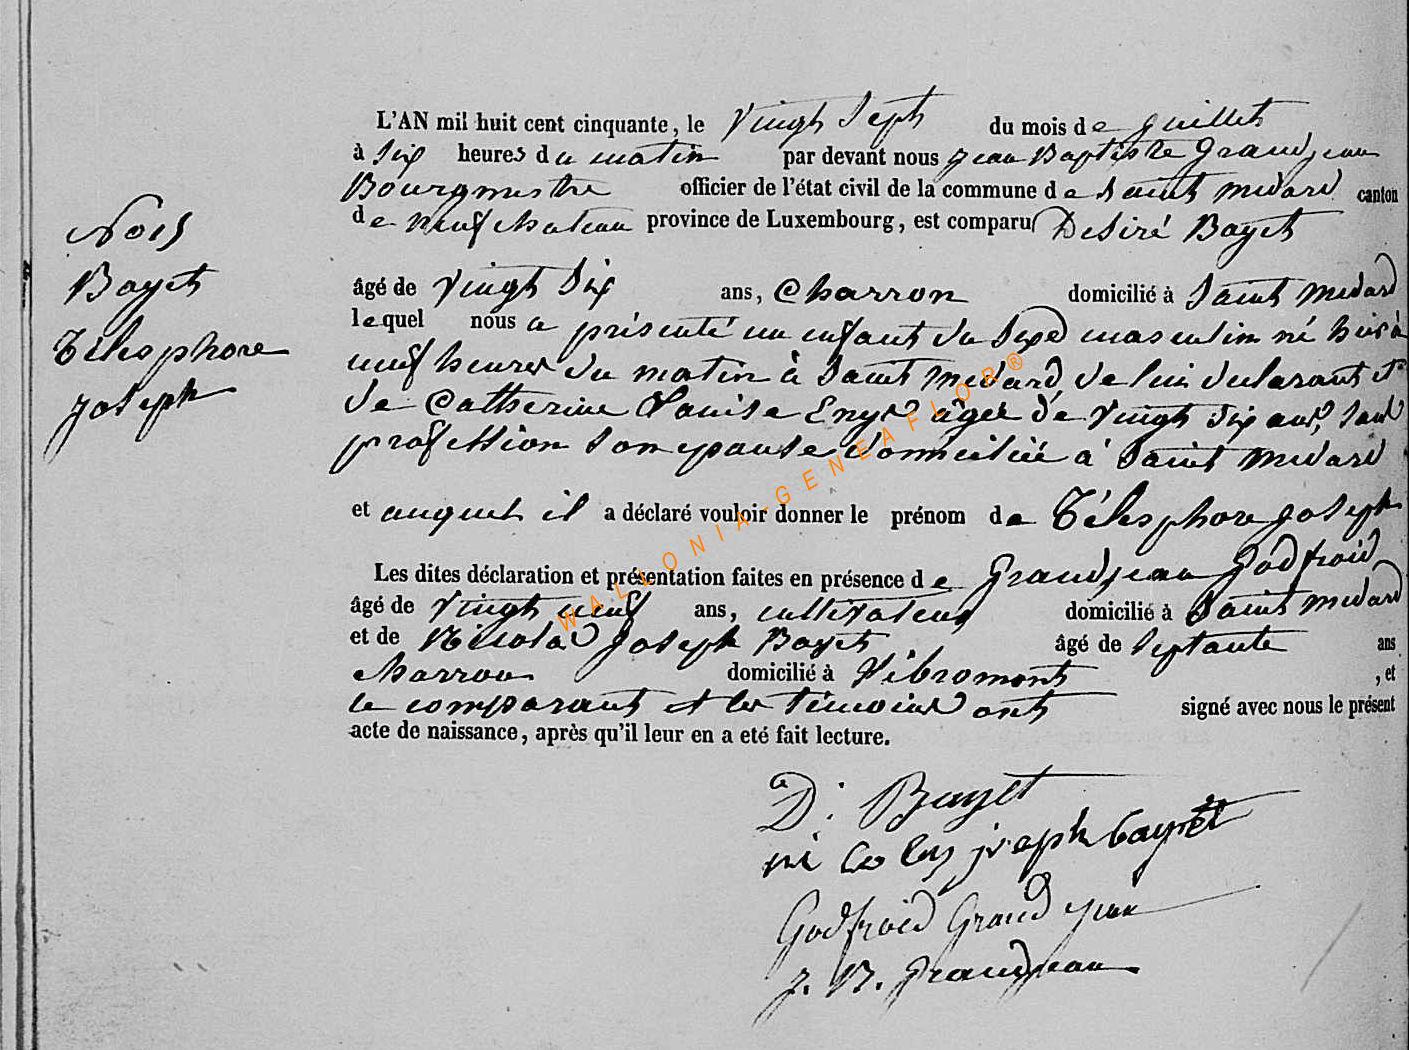 L'AN mil huit cent cinquante, le Vingt Sept du mois de Juillet
à Six heures du matin par devant nous Jean Baptiste Grandjean
Bourgmestre officier de l'état civil de la commune de Saint Médard canton
de Neufchateau province de Luxembourg, est comparu Désiré Bayet
Bayet
Télesphore
Joseph
âgé de Vingt Six ans, Charron domicilié à Saint Médard
lequel nous a présenté un enfant du Sexe masculin né hier à
neuf heures du matin à Saint Médard de lui déclarant et
de Catherine Louise âgée de Vingt Six ans, Sans
profession Son epouse domiciliée à Saint Médard
et auquel il a déclaré vouloir donner le prénom de Télesphore Joseph
Les dites déclaration et présentation faites en présence de Grandjean Godfroid
âgé de Vingt neuf ans, cultivateur domicilié à Saint Médard
et de Nicolas Joseph Bayet âgé de Septante ans
charron domicilié à Nibromont, et
le comparant et les témoins ont signé avec nous le présent
acte de naissance, après qu'il leur en a eté fait lecture.
D: Bayet
nicolas joseph bayet
Godfroid Grandjean
J. B. Grandjean
WALLONIA-GENEAFLOR®